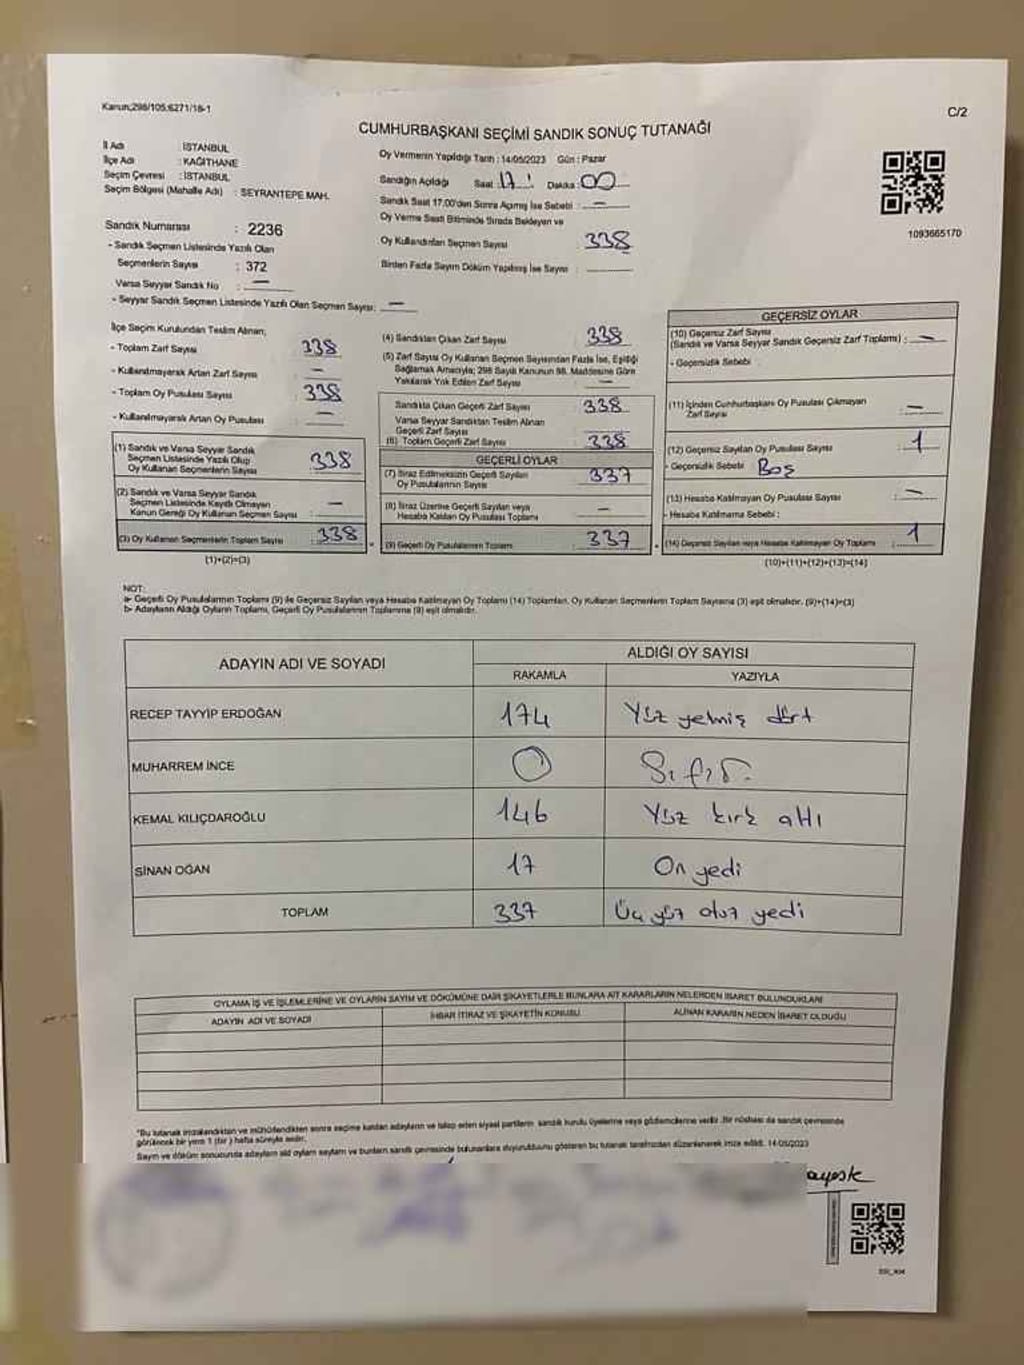 Kanun;298/105;6271/18-1
C/2
CUMHURBAŞKANI SEÇİMİ SANDIK SONUÇ TUTANAĞI
İl Adı : İSTANBUL
İlçe Adı : KAĞITHANE
Seçim Çevresi : İSTANBUL
Seçim Bölgesi (Mahalle Adı) : SEYRANTEPE MAH.
Sandık Numarası : 2236
- Sandık Seçmen Listesinde Yazılı Olan
Seçmenlerin Sayısı : 372
Varsa Seyyar Sandık No : —
- Seyyar Sandık Seçmen Listesinde Yazılı Olan Seçmen Sayısı: —
Oy Vermenin Yapıldığı Tarih : 14/05/2023 Gün : Pazar
Sandığın Açıldığı Saat : 17 Dakika : 00
Sandık Saat 17.00'den Sonra Açılmış İse Sebebi : —
Oy Verme Saati Bitiminde Sırada Bekleyen ve
Oy Kullandırılan Seçmen Sayısı : 338
Birden Fazla Sayım Döküm Yapılmış İse Sayısı :
1093665170
İlçe Seçim Kurulundan Teslim Alınan;
- Toplam Zarf Sayısı : 338
- Kullanılmayarak Artan Zarf Sayısı : —
- Toplam Oy Pusulası Sayısı : 338
- Kullanılmayarak Artan Oy Pusulası : —
(1) Sandık ve Varsa Seyyar Sandık
Seçmen Listesinde Yazılı Olup
Oy Kullanan Seçmenlerin Sayısı : 338
(2) Sandık ve Varsa Seyyar Sandık
Seçmen Listesinde Kayıtlı Olmayan
Kanun Gereği Oy Kullanan Seçmen Sayısı : —
(3) Oy Kullanan Seçmenlerin Toplam Sayısı : 338
(1)+(2)=(3)
(4) Sandıktan Çıkan Zarf Sayısı : 338
(5) Zarf Sayısı Oy Kullanan Seçmen Sayısından Fazla İse, Eşitliği
Sağlamak Amacıyla; 298 Sayılı Kanunun 98. Maddesine Göre
Yakılarak Yok Edilen Zarf Sayısı : —
Sandıkta Çıkan Geçerli Zarf Sayısı : 338
Varsa Seyyar Sandıktan Teslim Alınan
Geçerli Zarf Sayısı :
(6) Toplam Geçerli Zarf Sayısı : 338
GEÇERLİ OYLAR
(7) İtiraz Edilmeksizin Geçerli Sayılan
Oy Pusulalarının Sayısı : 337
(8) İtiraz Üzerine Geçerli Sayılan veya
Hesaba Katılan Oy Pusulası Toplamı : —
(9) Geçerli Oy Pusulalarının Toplamı : 337
GEÇERSİZ OYLAR
(10) Geçersiz Zarf Sayısı
(Sandık ve Varsa Seyyar Sandık Geçersiz Zarf Toplamı) : —
- Geçersizlik Sebebi :
(11) İçinden Cumhurbaşkanı Oy Pusulası Çıkmayan
Zarf Sayısı : —
(12) Geçersiz Sayılan Oy Pusulası Sayısı : 1
- Geçersizlik Sebebi : Boş
(13) Hesaba Katılmayan Oy Pusulası Sayısı : —
- Hesaba Katılmama Sebebi :
(14) Geçersiz Sayılan veya Hesaba Katılmayan Oy Toplamı : 1
(10)+(11)+(12)+(13)=(14)
NOT:
a- Geçerli Oy Pusulalarının Toplamı (9) ile Geçersiz Sayılan veya Hesaba Katılmayan Oy Toplamı (14) Toplamları, Oy Kullanan Seçmenlerin Toplam Sayısına (3) eşit olmalıdır. (9)+(14)=(3)
b- Adayların Aldığı Oyların Toplamı, Geçerli Oy Pusulalarının Toplamına (9) eşit olmalıdır.
ADAYIN ADI VE SOYADI
ALDIĞI OY SAYISI
RAKAMLA YAZIYLA
RECEP TAYYİP ERDOĞAN 174 Yüz yetmiş dört
MUHARREM İNCE 0 Sıfır
KEMAL KILIÇDAROĞLU 146 Yüz kırk altı
SİNAN OĞAN 17 On yedi
TOPLAM 337 Üç yüz otuz yedi
OYLAMA İŞ VE İŞLEMLERİNE VE OYLARIN SAYIM VE DÖKÜMÜNE DAİR ŞİKAYETLERLE BUNLARA AİT KARARLARIN NELERDEN İBARET BULUNDUKLARI
ADAYIN ADI VE SOYADI İHBAR İTİRAZ VE ŞİKAYETİN KONUSU ALINAN KARARIN NEDEN İBARET OLDUĞU
"Bu tutanak imzalandıktan ve mühürlendikten sonra seçime katılan adayların ve talep eden siyasi partilerin sandık kurulu üyelerine veya gözlemcilerine verilir. Bir nüshası da sandık çevresinde
görülecek bir yere 1 (bir) hafta süreyle asılır.
Sayım ve döküm sonucunda adayların aldı oyların sayıları ve bunların sandık çevresinde bulunanlara duyurulduğunu gösteren bu tutanak tarafımızdan düzenlenerek imza edildi. 14/05/2023